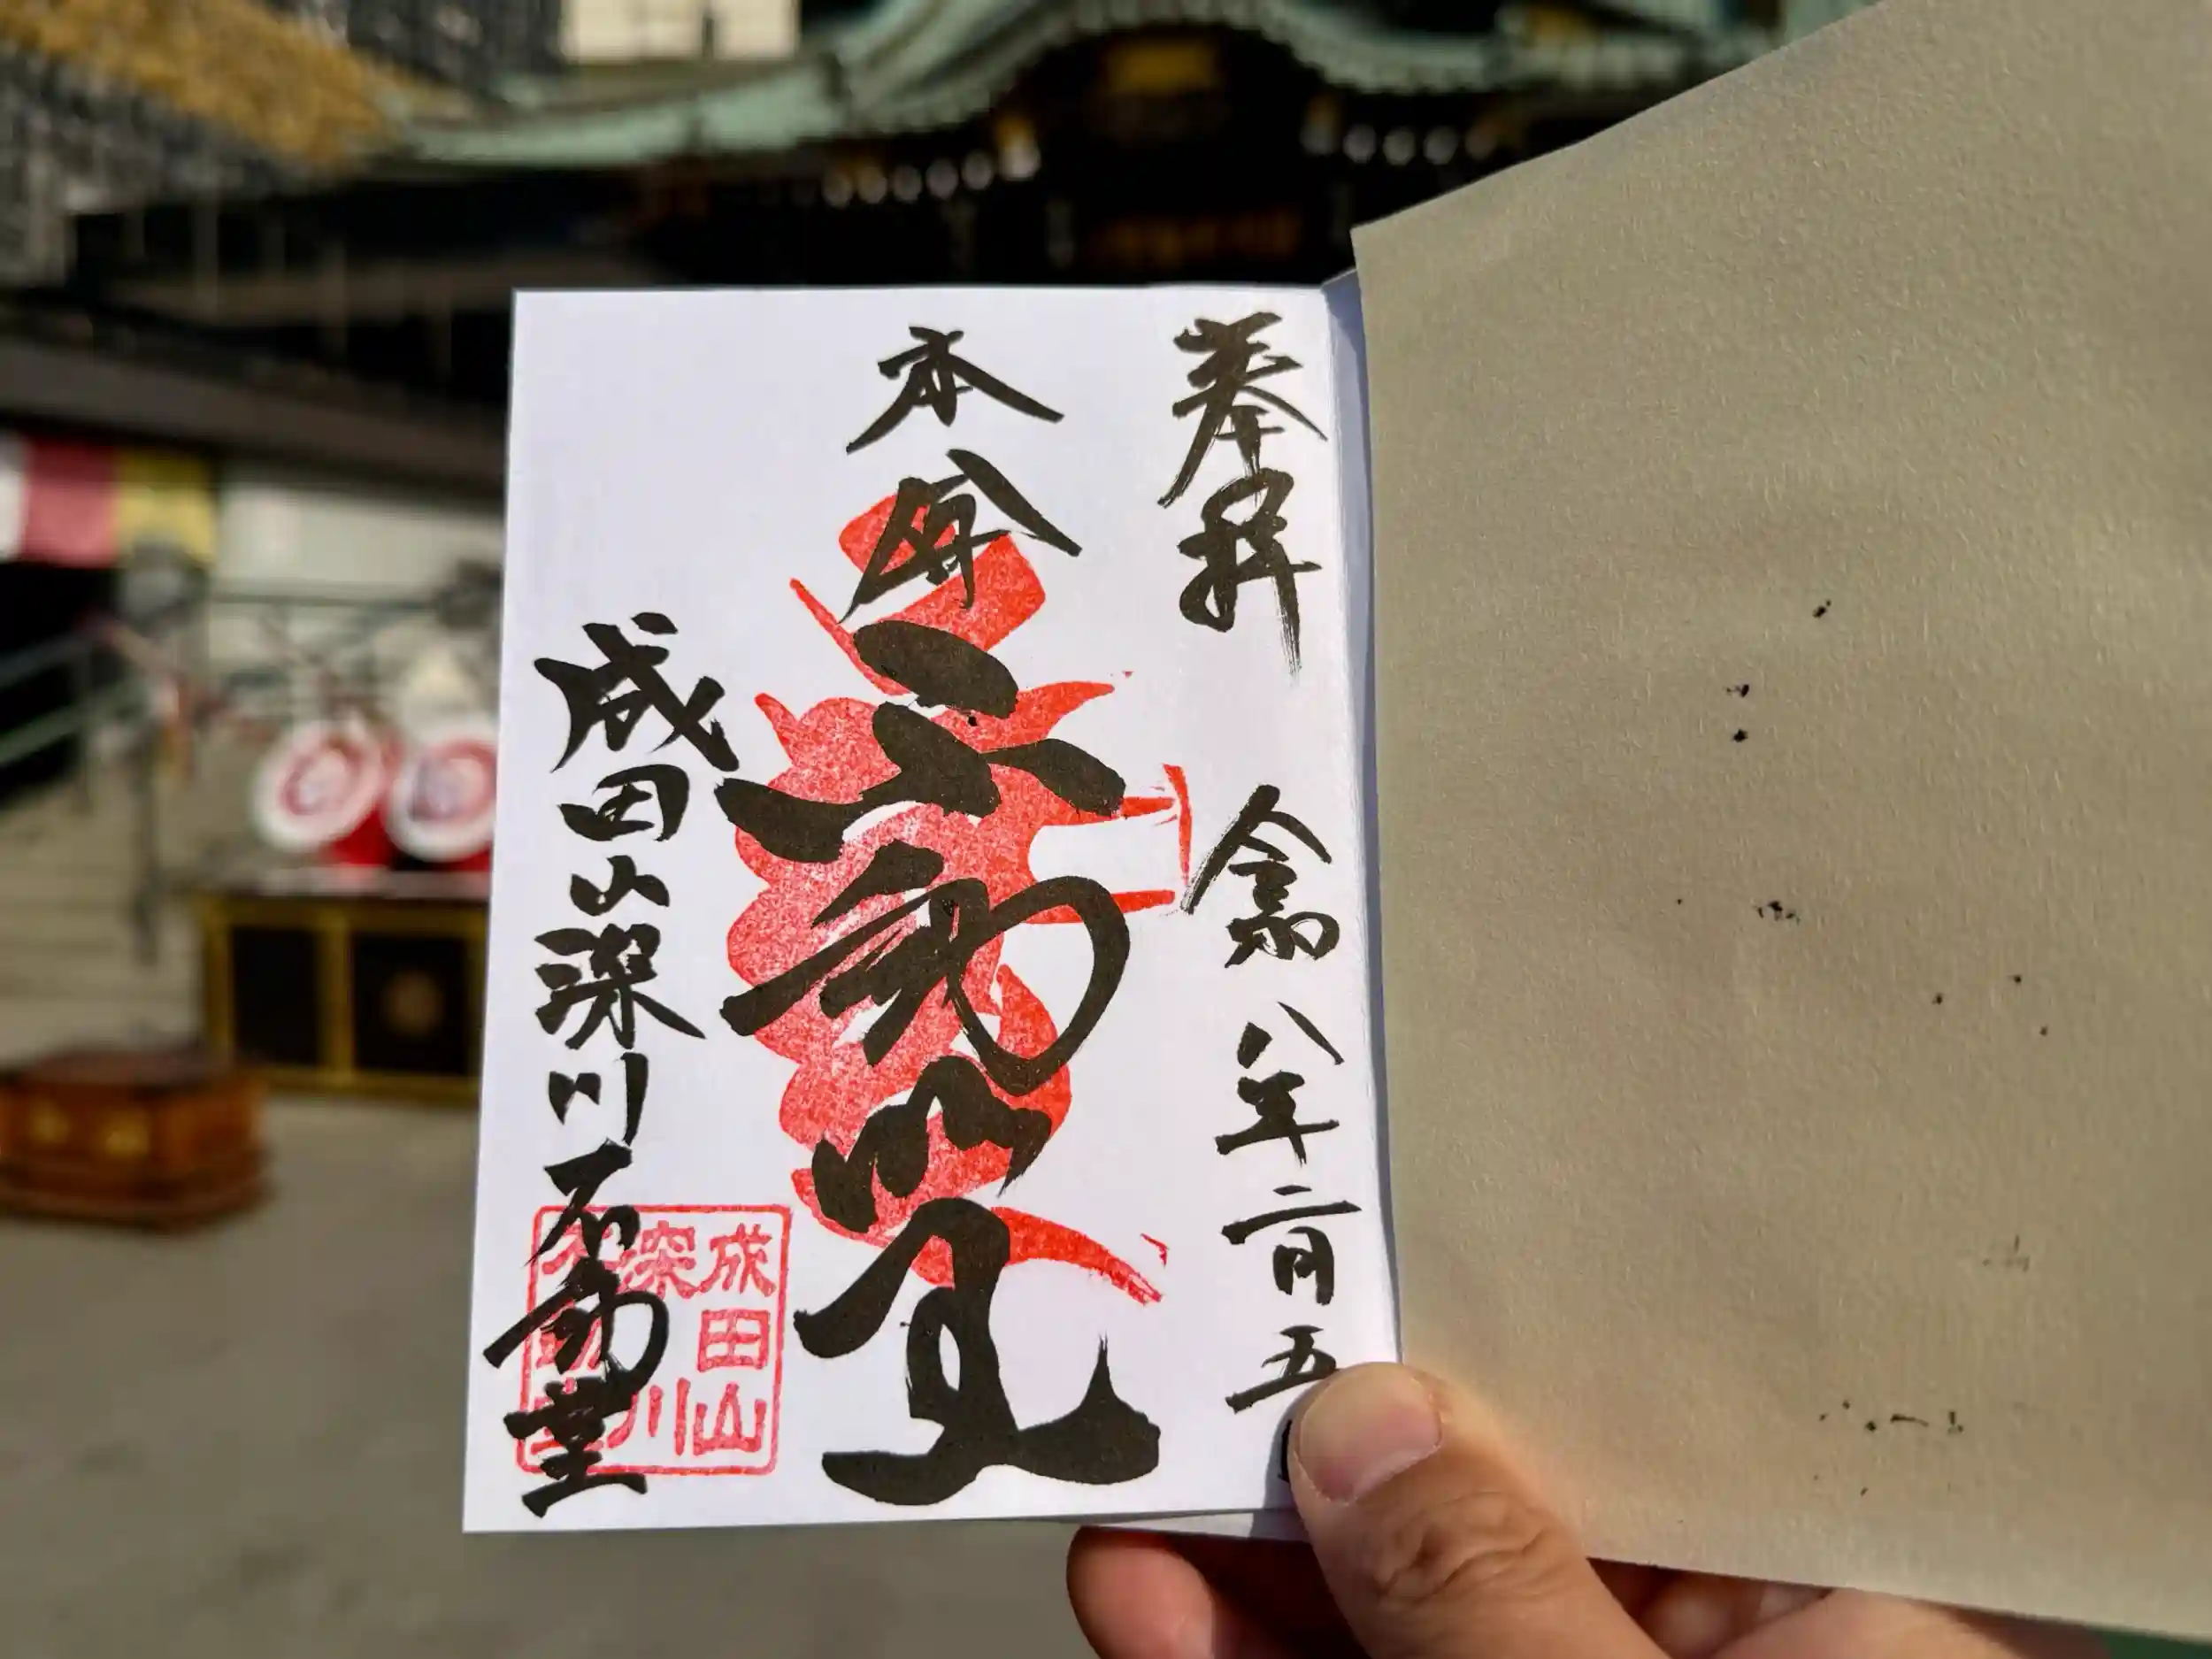 奉拝 令和八年二月五
本尊
不動明王
成田山深川不動堂
成田山
深川
不動堂